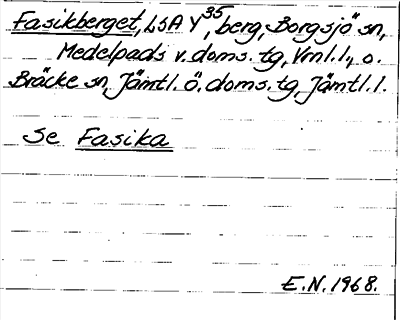 Fasikberget, LSA Y35, berg, Borgsjö sn,
Medelpads v. doms. tg, Vrnl. l., o.
Bräcke sn, Jämtl. ö. doms. tg, Jämtl. l.
Se Fasika
E.N. 1968.